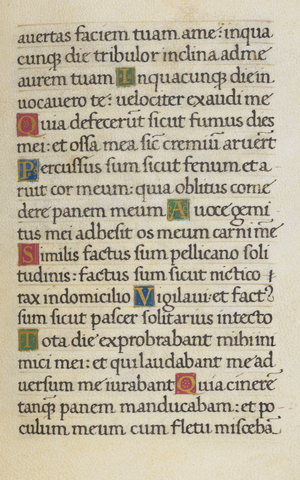 auertas faciem tuam ame: inqua
cunq̃ die tribulor inclina ad me
aurem tuam In quacunq̃ die in
uocauero te: uelociter exaudi me
Quia defecerūt sicut fumus dies
mei: et ossa mea sic̄ cremiū aruert̄
Percussus sum sicut fenum et a
ruit cor meum: quia oblitus come
dere panem meum A uoce gemi
tus mei adhesit os meum carni mee
Similis factus sum pellicano soli
tudinis: factus sum sicut nicticо
rax in domicilio Vigilaui: et fact⁹
sum sicut passer solitarius in tecto
Tota die exprobrabant mihi ini
mici mei: et qui laudabant me ad
uersum me iurabant Quia cinerē
tanq̃ panem manducabam: et po
culum meum cum fletu miscebā